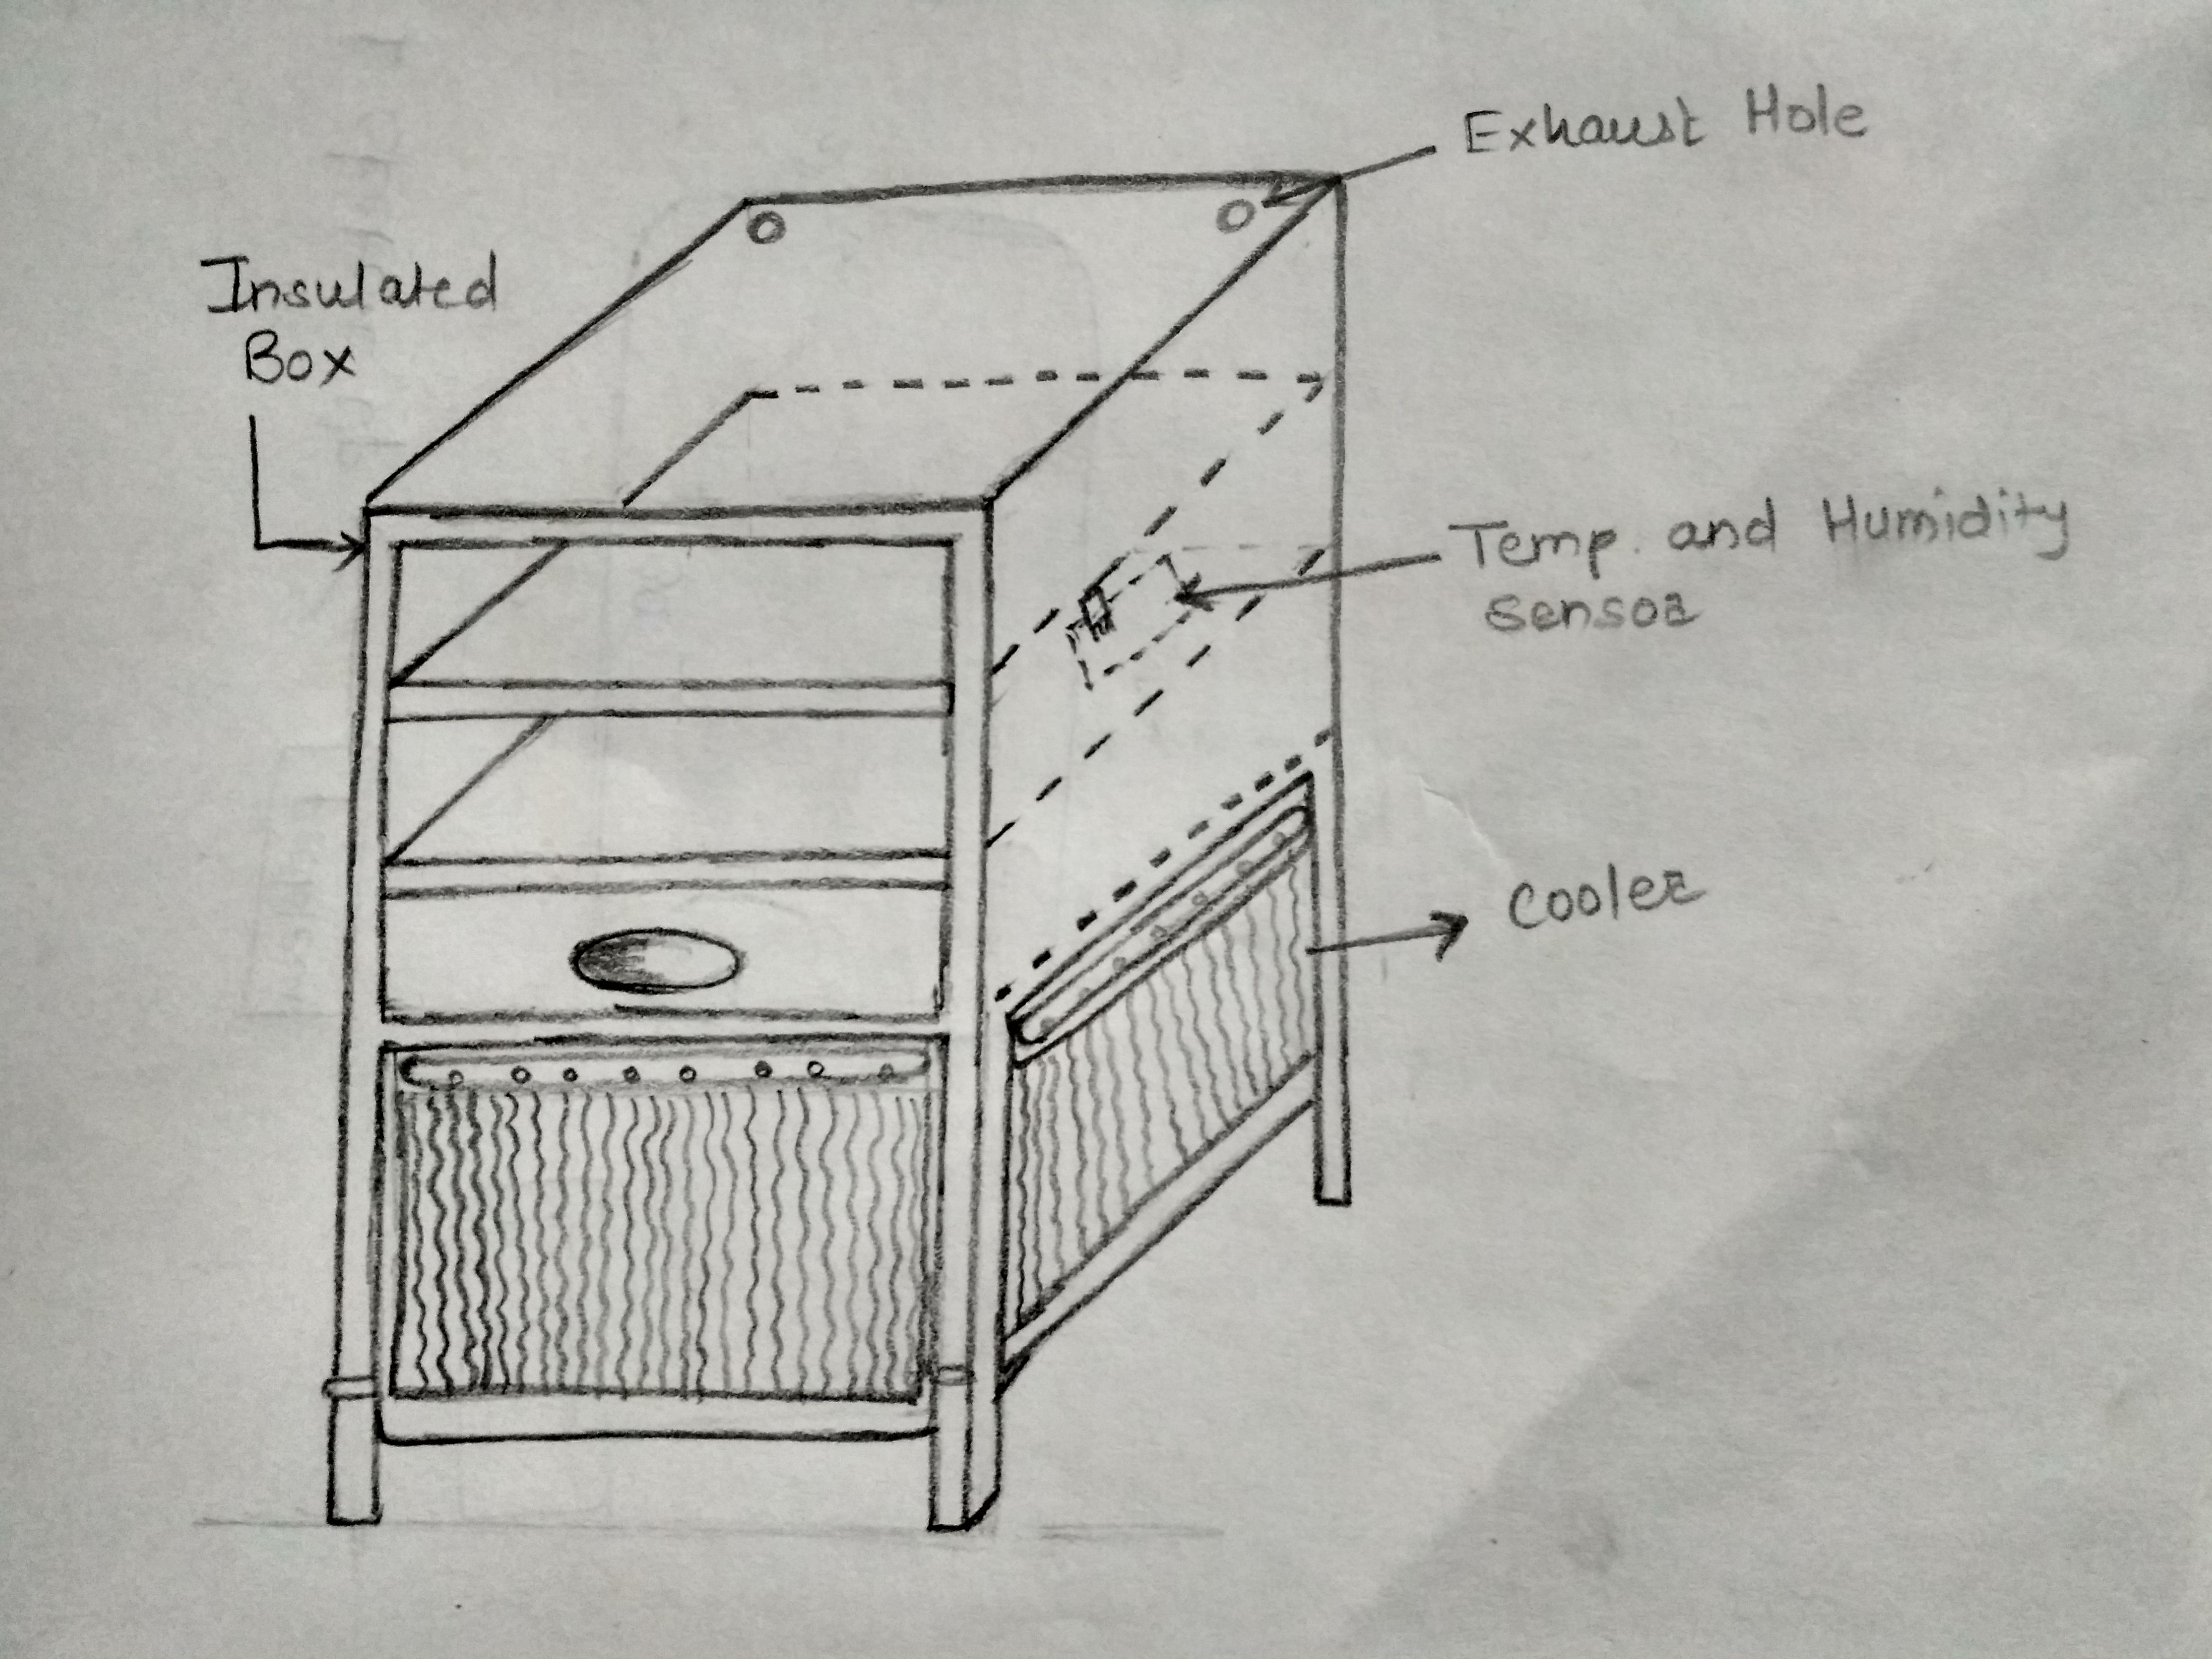 Exhaust Hole
Insulated
Box
Temp. and Humidity
Sensor
Cooler